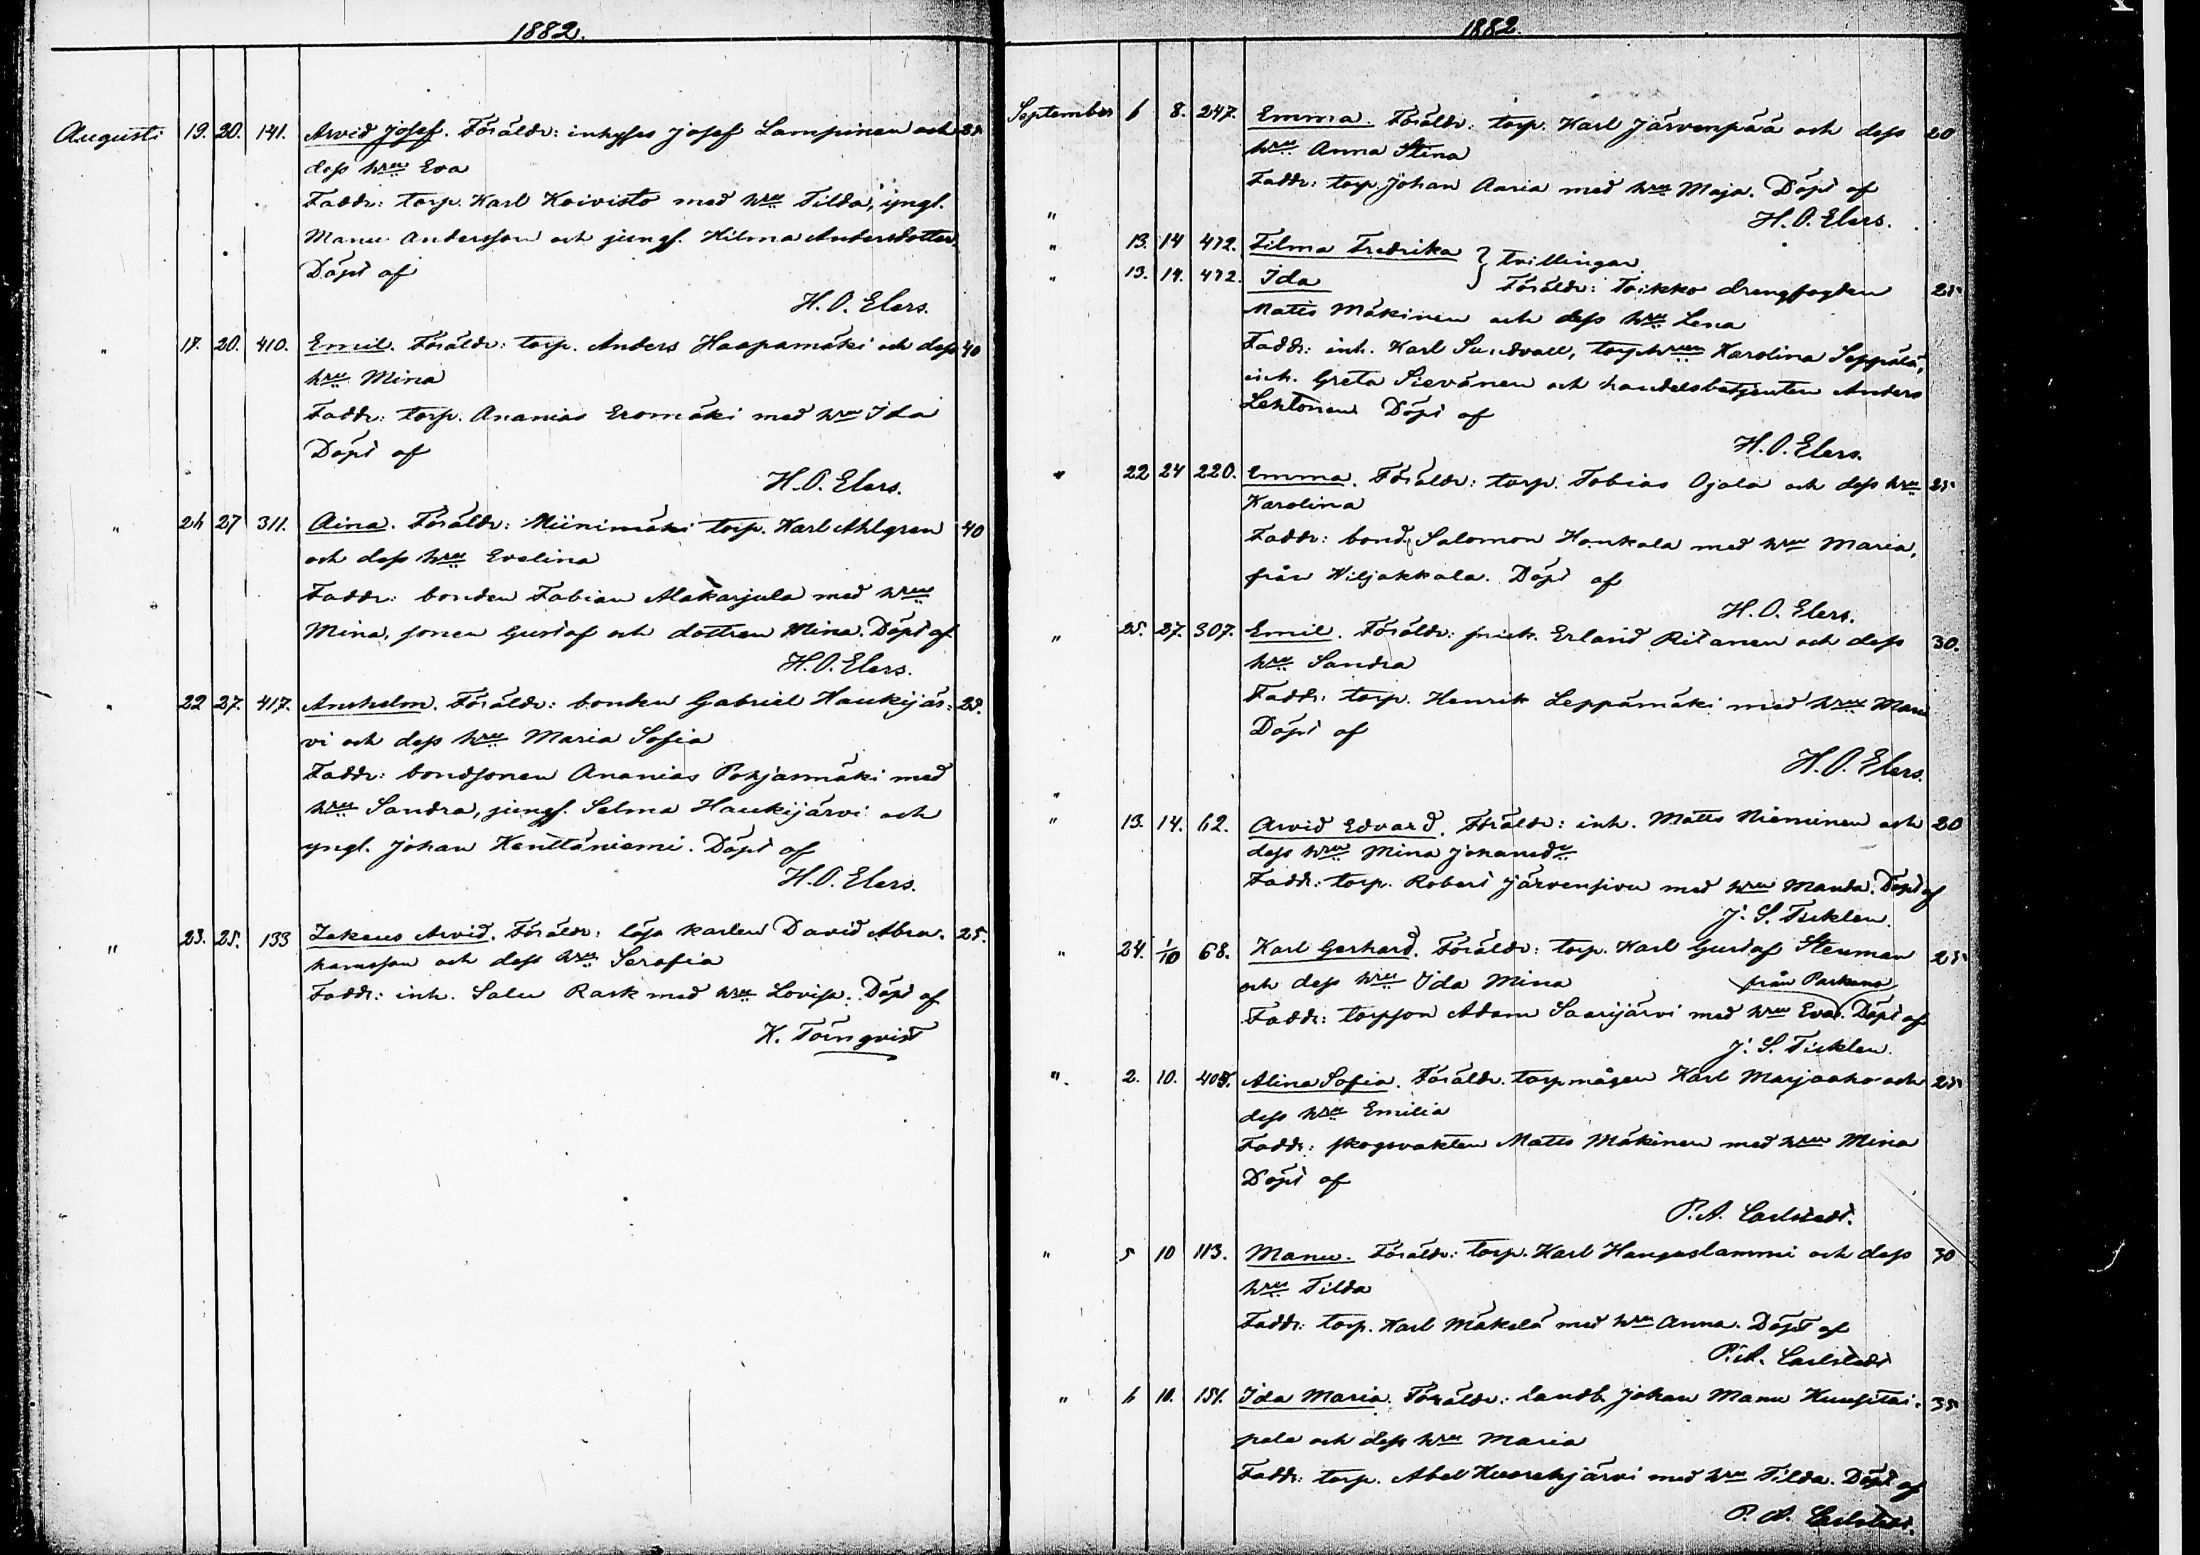 1882.
Augusti 19. 20. 141. Arvid Josef. Föräldr: inhyses Josef Lampinen och
dess hru Eva
Faddr: torp. Karl Koivisto med hru Tilda, yngl.
Manu Andersson och jungf. Hilma Andersdotter.
Döpt af
H. O. Elers.
" 17. 20. 410. Emil. Föräldr: torp. Anders Haapamäki och dess 40
hru Mina
Faddr: torp. Ananias Eromäki med hru Ida
Döpt af
H. O. Elers.
" 27 311. Aina. Föräldr: Miinimäki torp. Karl Ahlgren 40
och dess hru Evelina
Faddr: bonden Fabian Alakarjula med hru
Mina, sonen Gustaf och dottren Mina. Döpt af
H. O. Elers.
" 22 27. 417. Anshelm. Föräldr: bonden Gabriel Haukijär-
vi och dess hru Maria Sofia
Faddr: bondsonen Ananias Pohjasmäki med
hru Sandra, jungf. Selma Haukijärvi och
yngl. Johan Kenttäniemi. Döpt af
H. O. Elers.
" 23. 25. 133 Zakeus Arvid. Föräldr: lösa karlen David Abra- 25.
hamsson och dess hru Serafia
Faddr: inh. Salu Rask med hru Lovisa. Döpt af
K. Törnqvist
1882.
September 6 8. 247. Emma. Föräldr: torp. Karl Järvenpää och dess 20
hru Anna Stina
Faddr: torp. Johan Aaria med hru Maja. Döpt af
" H. O. Elers.
" 13. 14 472. Filma Fredrika } tvillingar
" 13. 14. 472. Ida Föräldr: Toikko drengfogden 25
Matts Mäkinen och dess hru Lena
Faddr: inh. Karl Sundvall, torp.hrun Karolina Seppälä,
inh. Greta Sievänen och handelsbetjenten Anders
Lehtonen Döpt af
H. O. Elers.
" 22 24 220. Emma. Föräldr: torp. Tobias Ojala och dess hru 25
Karolina
Faddr: bond. Salomon Honkala med hru Maria,
från Wiljakkala. Döpt af
H. O. Elers.
" 25. 27. 307. Emil. Föräldr: Erland Ritanen och dess 30.
hru Sandra
Faddr: torp. Henrik Leppämäki med hru Maria
Döpt af
H. O. Elers.
"
" 13. 14. 62. Arvid Edvard. Föräldr: inh. Matts Nieminen och 20
dess hru Mina Johansdr
Faddr: torp. Robert Järvensivu med hru Manda. Döpt af
J. S. Ticklen.
" 24. 1/10 68. Karl Gerhard. Föräldr: torp. Karl Gustaf Stenman 25
och dess hru Ida Mina från Parkano
Faddr: torpson Adam Saarijärvi med hru Eva. Döpt af
J. S. Ticklen.
" 2. 10. Alina Sofia. Föräldr. torpmågen Karl Marjaaho och 25
dess hru Emilia
Faddr: skogsvakten Matts Mäkinen med hru Mina
Döpt af
P. A. Carlstedt.
" 5 10 113. Manu. Föräldr: torp. Karl Hangaslammi och dess 30
hru Tilda
Faddr: torp. Karl Mäkelä med hru Anna. Döpt af
P. A. Carlstedt
" 6 10. 151. Ida Maria. Föräldr: landb. Johan Manu Kuusitai- 35
pale och dess hru Maria
Faddr: torp. Abel Kuorehjärvi med hru Tilda. Döpt af
P. A. Carlstedt.